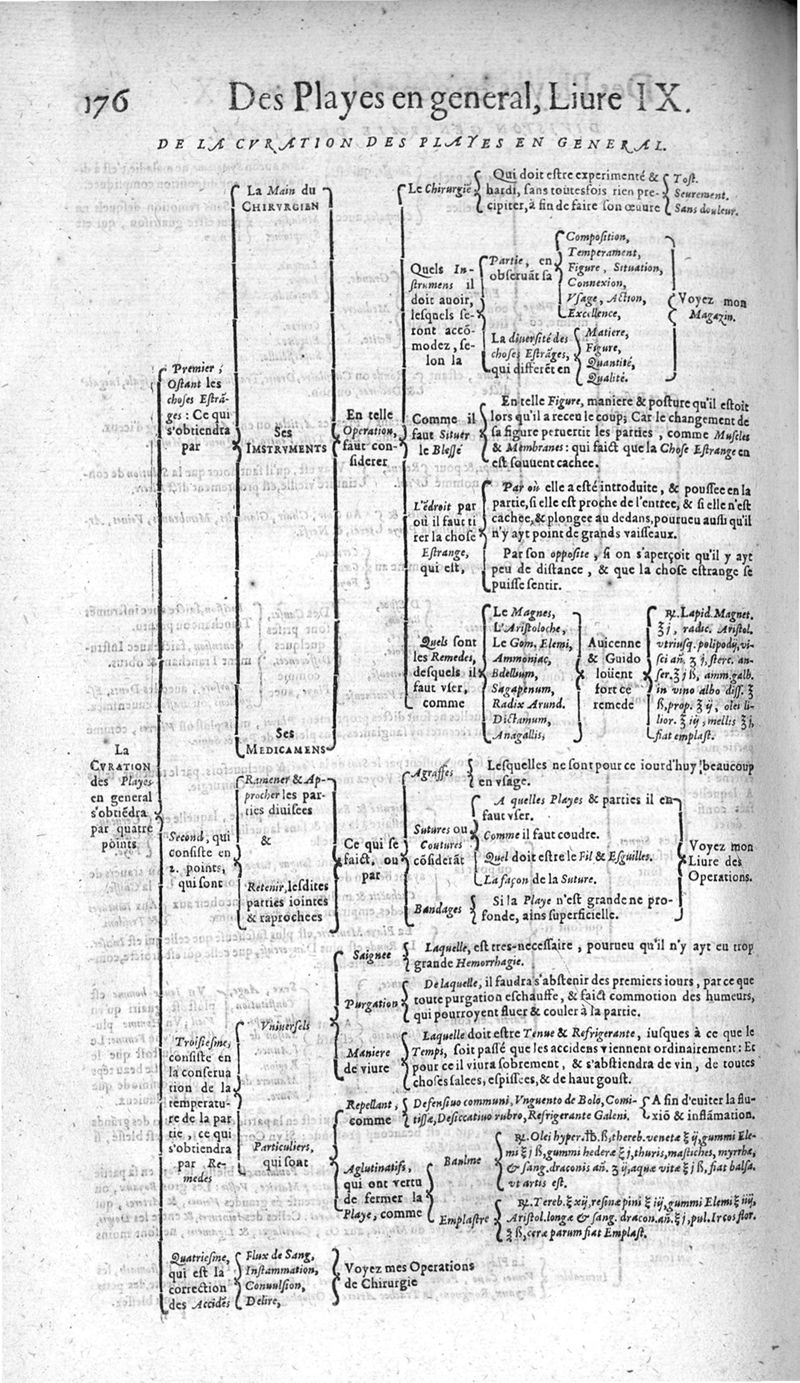 176
Des Playes en general, Liure IX.
DE LA CVRATION DES PLAYES EN GENERAL.
La
CVRATION
des Playes
en general
s'obtiēdra
par quatre
points
Premier,
Ostant les
choses Estrā-
ges : Ce qui
s'obtiendra
par
La Main du
CHIRVRGIEN
Ses
INSTRVMENTS
Ses
MEDICAMENS
En telle
Operation,
faut con-
siderer
Le Chirurgiē
Qui doit estre experimenté &
hardi, sans toutesfois rien pre-
cipiter, à fin de faire son œuure
Tost.
Seurement.
Sans douleur.
Quels In-
strumens il
doit auoir,
lesquels se-
ront accō-
modez, se-
lon la
Partie, en
obseruāt sa
Composition,
Temperament,
Figure, Situation,
Connexion,
Vsage, Action,
Excellence,
La diuersité des
choses Estrāges,
qui differēt en
Matiere,
Figure,
Quantité,
Qualité.
Voyez mon
Magazin.
Comme il
faut Situer
le Blessé
En telle Figure, maniere & posture qu'il estoit
lors qu'il a receu le coup; Car le changement de
sa figure peruertit les parties, comme Muscles
& Membranes : qui faict que la Chose Estrange en
est souuent cachee.
L'ēdroit par
où il faut ti
rer la chose
Estrange,
qui est,
Par où elle a esté introduite, & poussee en la
partie, si elle est proche de l'entree, & si elle n'est
cachee, & plongee au dedans, pourueu aussi qu'il
n'y ayt point de grands vaisseaux.
Par son opposite, si on s'aperçoit qu'il y ayt
peu de distance, & que la chose estrange se
puisse sentir.
Quels sont
les Remedes,
desquels il
faut vser,
comme
Le Magnes,
L'Aristoloche,
Le Gom. Elemi,
Ammoniac,
Bdellium,
Sagapenum,
Radix Arund.
Dictamum,
Anagallis,
Auicenne
& Guido
loüent
fort ce
remede
℞. Lapid. Magnet.
℥ j, radic. Aristol.
vtriusq. polipodij, vi-
sci añ. ʒ j, sterc. an-
ser. ℥ j ß, amm. galb.
in vino albo diss. ℥
ß, prop. ℥ ij, olei li-
lior. ℥ iij, mellis ℥ j,
fiat emplast.
Second, qui
consiste en
2. points,
qui sont
Ramener & Ap-
procher les par-
ties diuisees
&
Retenir, lesdites
parties iointes
& raprochees
Ce qui se
faict, ou
par
Agraffes
Lesquelles ne sont pour ce iourd'huy beaucoup
en vsage.
Sutures ou
Coutures
cōsiderāt
A quelles Playes & parties il en
faut vser.
Comme il faut coudre.
Quel doit estre le Fil & Esguilles.
La façon de la Suture.
Bandages
Si la Playe n'est grande ne pro-
fonde, ains superficielle.
Voyez mon
Liure des
Operations.
Troisiesme,
consiste en
la conserua
tion de la
temperatu-
re de la par
tie, ce qui
s'obtiendra
par Re-
medes
Vniuersels
Saignee
Laquelle, est tres-necessaire, pourueu qu'il n'y ayt eu trop
grande Hemorrhagie.
Purgation
De laquelle, il faudra s'abstenir des premiers iours, parce que
toute purgation eschauffe, & faict commotion des humeurs,
qui pourroyent fluer & couler à la partie.
Maniere
de viure
Laquelle doit estre Tenue & Refrigerante, iusques à ce que le
Temps, soit passé que les accidens viennent ordinairement : Et
pour ce il viura sobrement, & s'abstiendra de vin, de toutes
choses salees, espissees, & de haut goust.
Particuliers,
qui sont
Repellant,
comme
Defensiuo communi, Vnguento de Bolo, Comi-
tissæ, Desiccatiuo rubro, Refrigerante Galeni.
A fin d'euiter la flu-
xiō & inflāmation.
Aglutinatifs,
qui ont vertu
de fermer la
Playe, comme
Baulme
℞. Olei hyper. ℔. ß, thereb. venetæ ℥ ij, gummi Ele-
mi ℥ j ß, gummi hederæ ℥ j, thuris, mastiches, myrrhæ,
& sang. draconis añ. ʒ ij, aquæ vitæ ℥ j ß, fiat balsa.
vt artis est.
Emplastre
℞. Tereb. ℥ xij, resinæ pini ℥ iij, gummi Elemi ℥ iiij,
Aristol. longæ & sang. dracon. añ. ℥ j, pul. Ireos flor.
℥ ß, ceræ parum fiat Emplast.
Quatriesme,
qui est la
correction
des Accidēs
Flux de Sang,
Inflammation,
Conuulsion,
Delire,
Voyez mes Operations
de Chirurgie